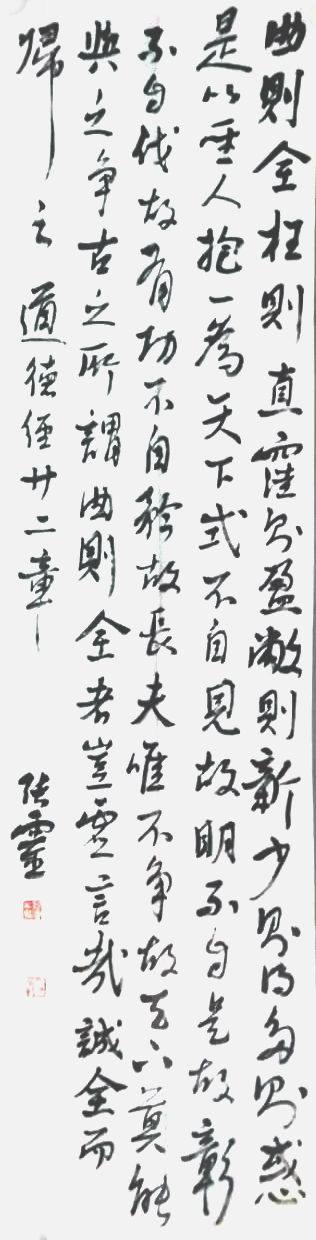 曲則全枉則直窪則盈敝則新少則得多則惑
是以聖人抱一為天下式不自見故明不自是故彰
不自伐故有功不自矜故長夫唯不争故天下莫能
與之争古之所謂曲則全者豈虚言哉誠全而
歸之 道德經廿二章 張靈